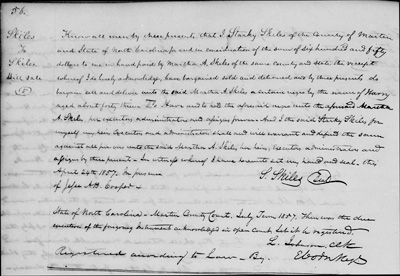 56.
Skiles
To
Skiles
Bill sale
Know all men by these presents that I Stanly Skiles of the County of Martin
and State of North Carolina for and in consideration of the sum of six hundred and fifty
dollars to me in hand paid by Martha A Skiles of the same county and state the receipt
whereof I do hereby acknowledge, have bargained sold and delivered and by these presents do
bargain sell and deliver unto the said Martha A Skiles a certain negro by the name of Henry
aged about forty three To Have and to hold the aforesaid negro unto the aforesaid Martha
A Skiles, her executors administrators and assigns forever And I the said Stanly Skiles for
myself my heirs Executors and administrators shall and will warrant and defend the same
against all persons unto the said Martha A Skiles her heirs, Executors administrators and
assigns by these presents. In witness whereof I have hereunto set my hand and seal this
April 24th 1857. In presence
of Jesse Cooper
S. Skiles Seal
State of North Carolina Martin County Court. July Term 1857. Then was the due
execution of the foregoing instrument acknowledged in open Court. Let it be registered.
L. Johnson Clk
Registered according to Law - By.